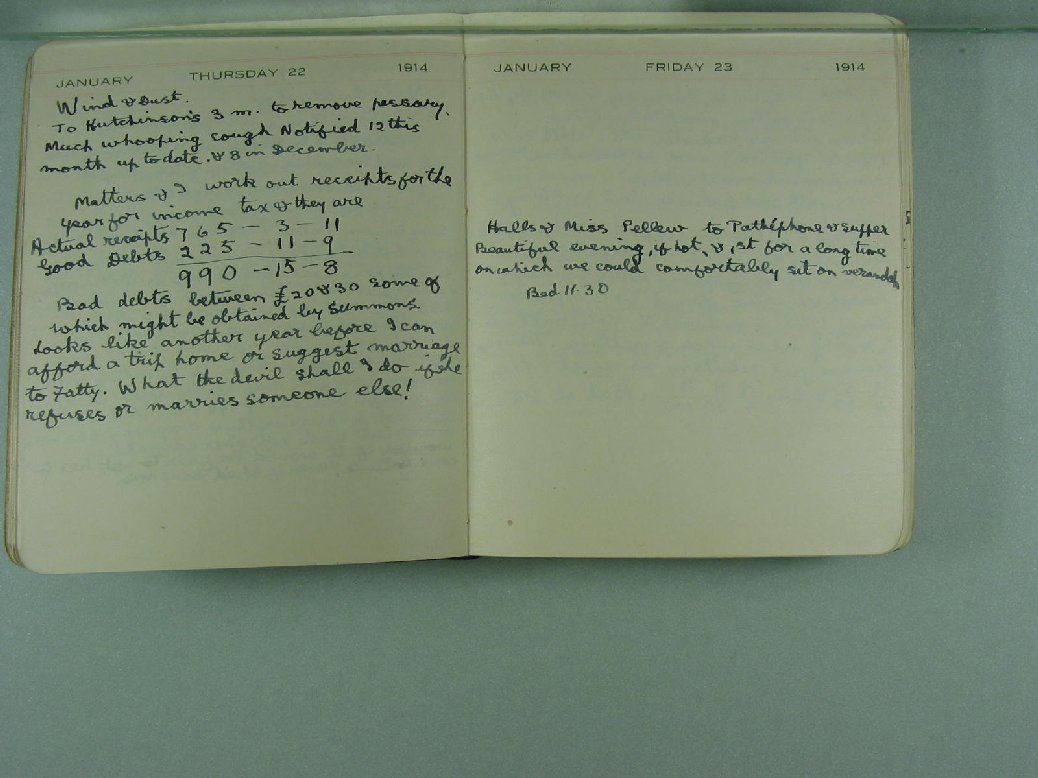 JANUARY THURSDAY 22 1914
Wind & Dust.
To Hutchinson's 3 m. to remove pessary.
Much whooping cough Notified 12 this
month up to date. & 8 in December.
Matters & I work out receipts for the
year for income tax & they are
Actual receipts 765 - 3 - 11
Good Debts 225 - 11 - 9
990 - 15 - 8
Bad debts between £20 & 30 some of
which might be obtained by Summons
Looks like another year before I can
afford a trip home or suggest marriage
to Fatty. What the devil shall I do if she
refuses or marries someone else!
JANUARY FRIDAY 23 1914
Halls & Miss Pellew to Pathéphone & supper
Beautiful evening, if hot, & 1st for a long time
on which we could comfortably sit on verandah
Bed 11.30